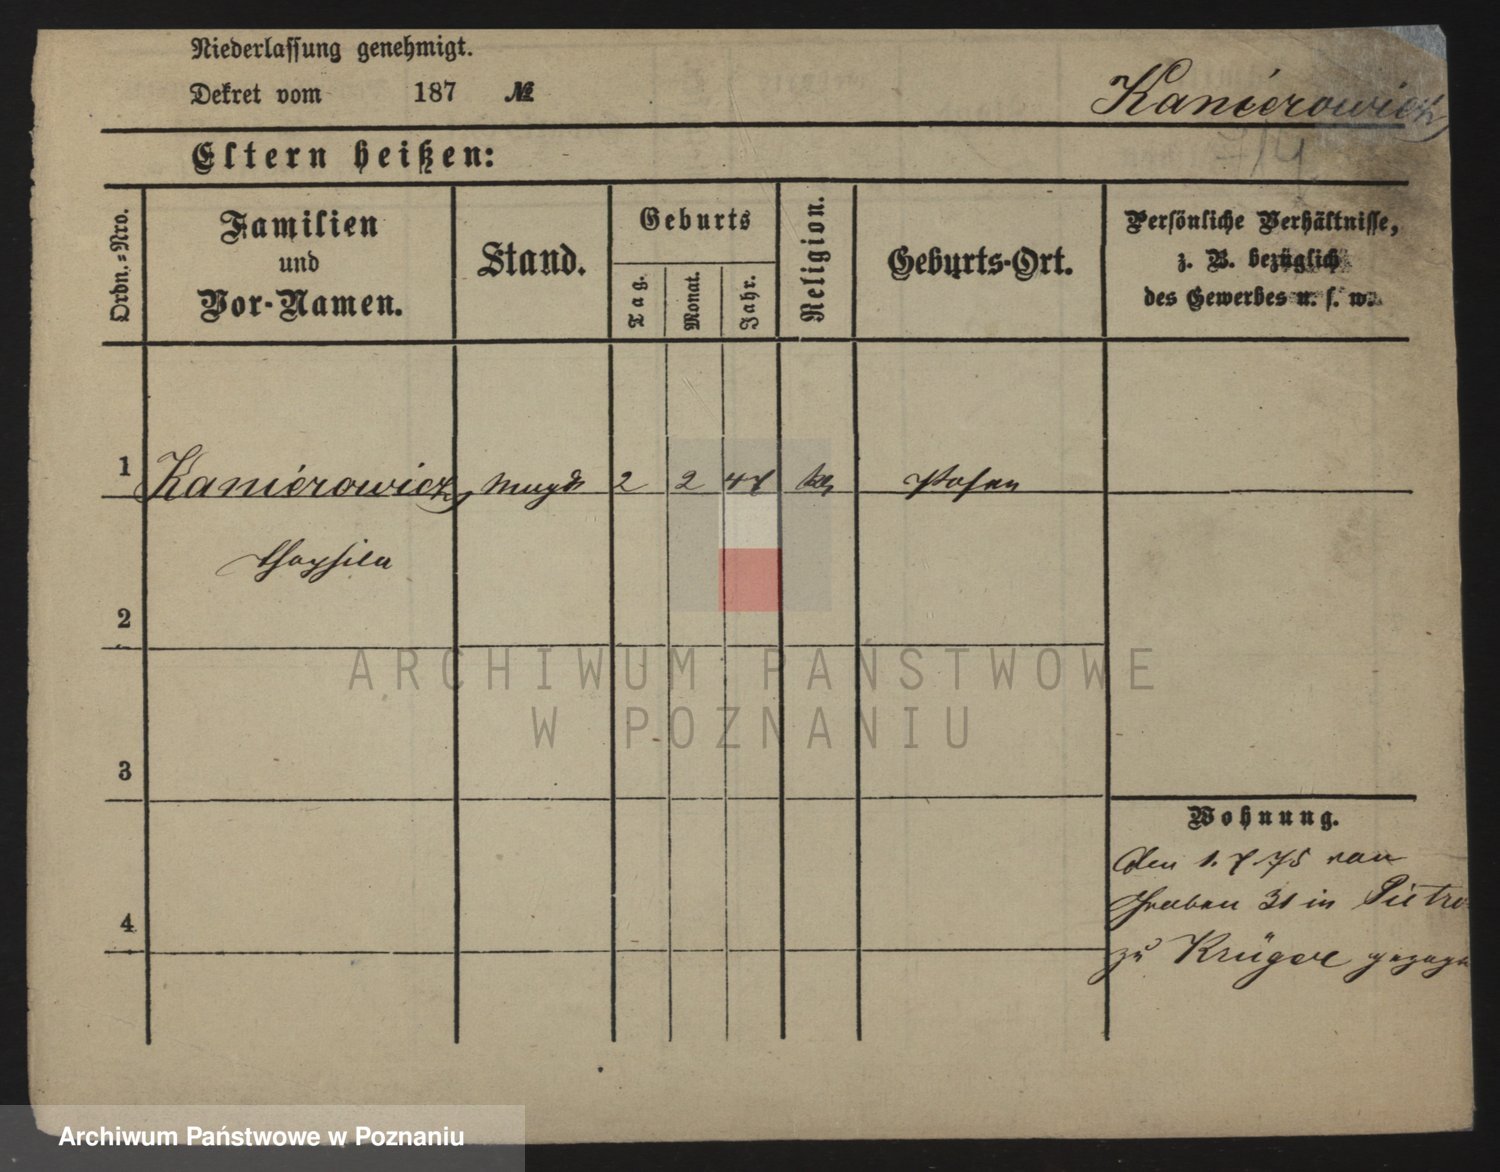 Niederlassung genehmigt.
Dekret vom 187 №
Kamiérowicz
Eltern heißen:
Ordn.-Nro.
Familien
und
Vor-Namen.
Stand.
Geburts
Tag.
Monat.
Jahr.
Religion.
Geburts-Ort.
Persönliche Verhältnisse,
z. B. bezüglich
des Gewerbes u. s. w.
1 Kamiérowicz Magd 2 2 48 Posen
2
3
Wohnung.
Den 1. 7 75 von
Graben 31 in
4
zu Krüger
ARCHIWUM PAŃSTWOWE
W POZNANIU
Archiwum Państwowe w Poznaniu